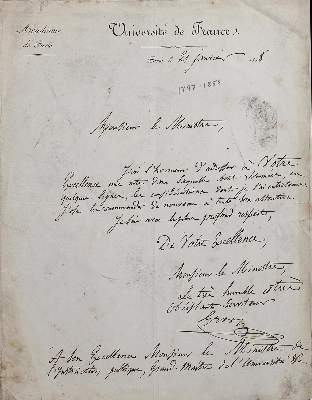 Académie
de Paris
Université de France.
1797-1858
Monsieur le Ministre,
J'ai l'honneur d'adresser à Votre
Excellence une note dans laquelle sont résumées, en
quelques lignes, les considérations dont je l'ai entretenue.
J'ose les recommander de nouveau à toute son attention.
Je suis avec le plus profond respect,
De Votre Excellence,
Monsieur le Ministre,
Le très humble et très
Obéissant serviteur
A Son Excellence Monsieur le Ministre de
l'Instruction publique, Grand-Maître de l'Université &c